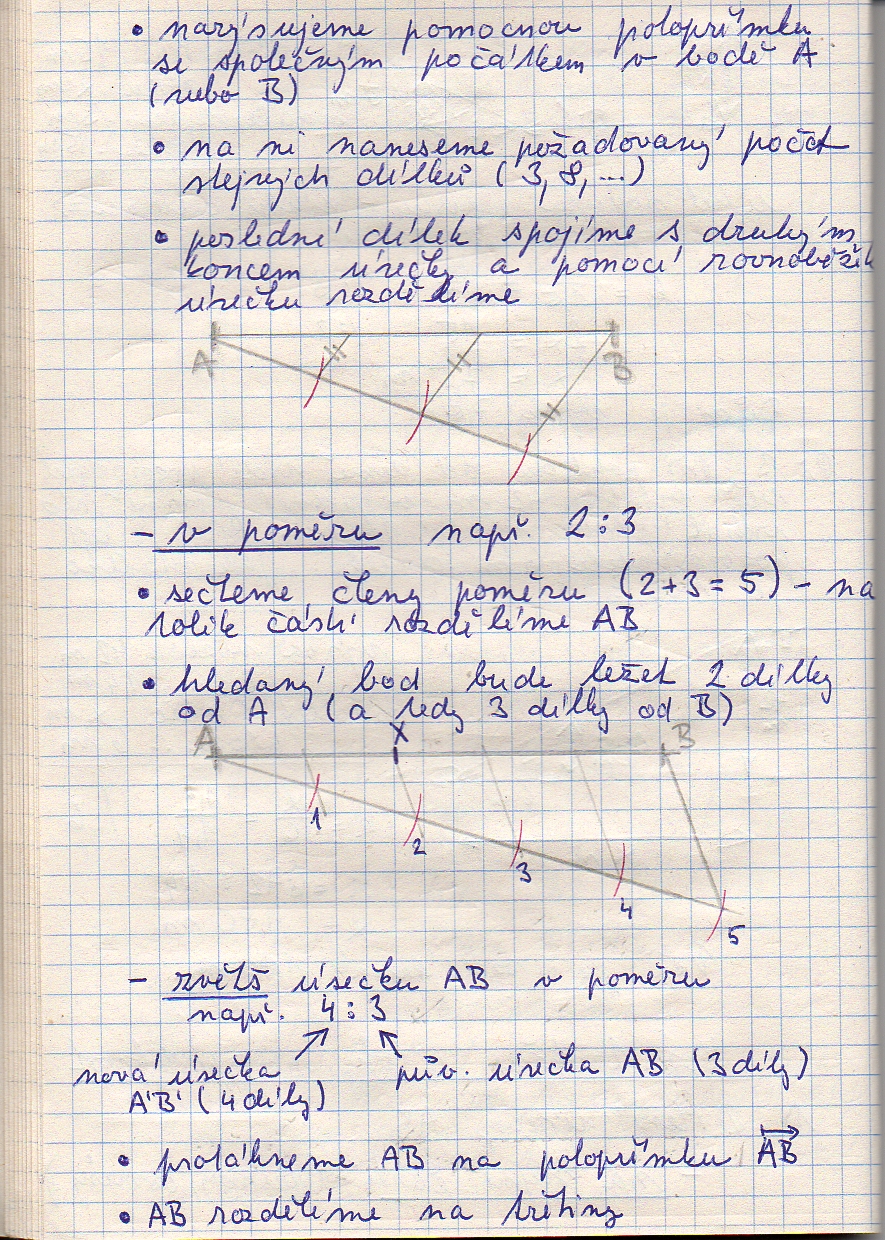 • narýsujeme pomocnou polopřímku
se společným počátkem v bodě A
(nebo B)
• na ni naneseme požadovaný počet
stejných dílků (3, 8, ...)
• poslední dílek spojíme s druhým
koncem úsečky a pomocí rovnoběžek
úsečku rozdělíme
A B
- v poměru např. 2:3
• sečteme členy poměru (2+3=5) - na
tolik částí rozdělíme AB
• hledaný bod bude ležet 2 dílky
od A (a tedy 3 dílky od B)
A X B
1
2
3
4
5
- zvětš úsečku AB v poměru
např. 4:3
nová úsečka pův. úsečka AB (3 díly)
A'B' (4 díly)
• protáhneme AB na polopřímku AB
• AB rozdělíme na třetiny